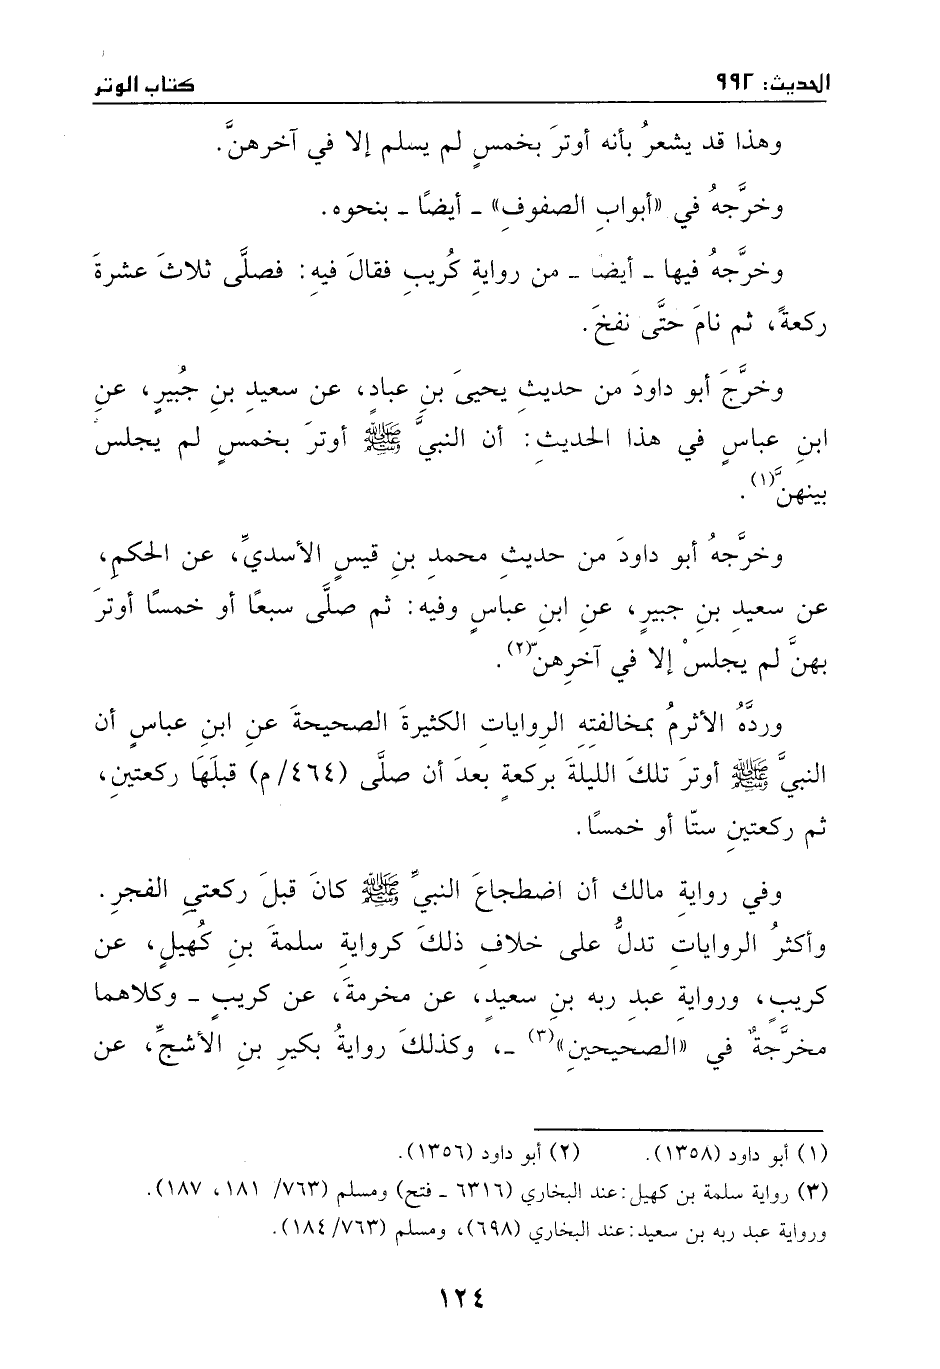 الحديث: ٩٩٢
كتاب الوتر
وهذا قد يشعرُ بأنه أوترَ بخمسٍ لم يسلم إلا في آخرهنَّ.
وخرَّجهُ في «أبوابِ الصفوفِ» ـ أيضًا ـ بنحوه.
وخرَّجهُ فيها ـ أيضًا ـ من روايةِ كُريبٍ فقالَ فيهِ: فصلَّى ثلاثَ عشرةَ
ركعةً، ثم نامَ حتَّى نفخَ.
وخرَّجَ أبو داودَ من حديثِ يحيىَ بنِ عبادٍ، عن سعيدِ بنِ جُبيرٍ، عنِ
ابنِ عباسٍ في هذا الحديثِ: أن النبيَّ ﷺ أوترَ بخمسٍ لم يجلسْ
بينهنَّ(١).
وخرَّجهُ أبو داودَ من حديثِ محمدِ بنِ قيسٍ الأسديِّ، عن الحكمِ،
عن سعيدِ بنِ جبيرٍ، عنِ ابنِ عباسٍ وفيه: ثم صلَّى سبعًا أو خمسًا أوترَ
بهنَّ لم يجلسْ إلا في آخرِهنَّ(٢).
وردَّهُ الأثرمُ بمخالفتهِ الرواياتِ الكثيرةَ الصحيحةَ عنِ ابنِ عباسٍ أن
النبيَّ ﷺ أوترَ تلكَ الليلةَ بركعةٍ بعدَ أن صلَّى (٤٦٤/م) قبلَهَا ركعتينِ،
ثم ركعتينِ ستًا أو خمسًا.
وفي روايةِ مالك أن اضطجاعَ النبيِّ ﷺ كانَ قبلَ ركعتيِ الفجرِ.
وأكثرُ الرواياتِ تدلُّ على خلافِ ذلكَ كروايةِ سلمةَ بنِ كُهيلٍ، عن
كريبٍ، وروايةِ عبدِ ربه بنِ سعيدٍ، عن مخرمةَ، عن كريبٍ ـ وكلاهما
مخرَّجةٌ في «الصحيحينِ»(٣) ـ، وكذلكَ روايةُ بكيرِ بنِ الأشجِّ، عن
(١) أبو داود (١٣٥٨). (٢) أبو داود (١٣٥٦).
(٣) رواية سلمة بن كهيل: عند البخاري (٦٣١٦ ـ فتح) ومسلم (٧٦٣/ ١٨١، ١٨٧).
ورواية عبد ربه بن سعيد: عند البخاري (٦٩٨)، ومسلم (٧٦٣/ ١٨٤).
١٢٤